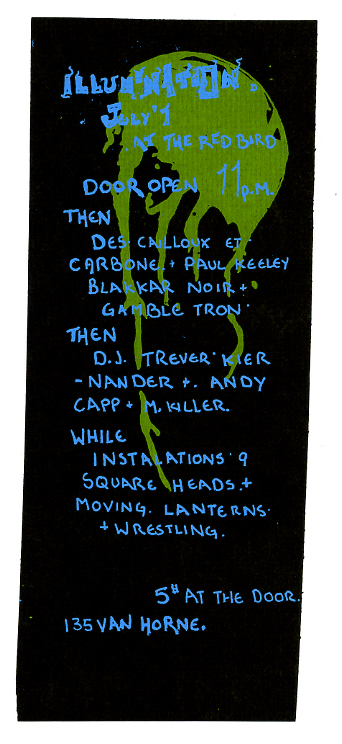 ILLUMINATION.
JULY 1
AT THE RED BIRD
DOOR OPEN 11 P.M.
THEN
DES CAILLOUX ET
CARBONE + PAUL KEELEY
BLAKKAR NOIR +
GAMBLE TRON
THEN
D.J. TREVER KIER
-NANDER +. ANDY
CAPP + M. KILLER.
WHILE
INSTALATIONS 9
SQUARE HEADS +
MOVING. LANTERNS
+ WRESTLING.
5$ AT THE DOOR.
135 VAN HORNE.